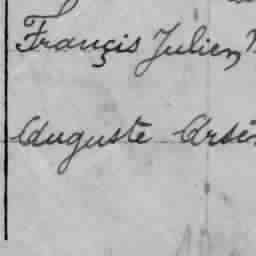 François Julien
Auguste Arsè